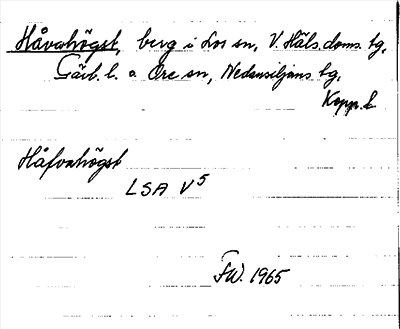 Håvahögst, berg i Los sn, V. Häls. doms. tg,
Gävl. l. o. Ore sn, Nedansiljans tg,
Kopp. l.
Håfvahögst
LSA V5
FW. 1965